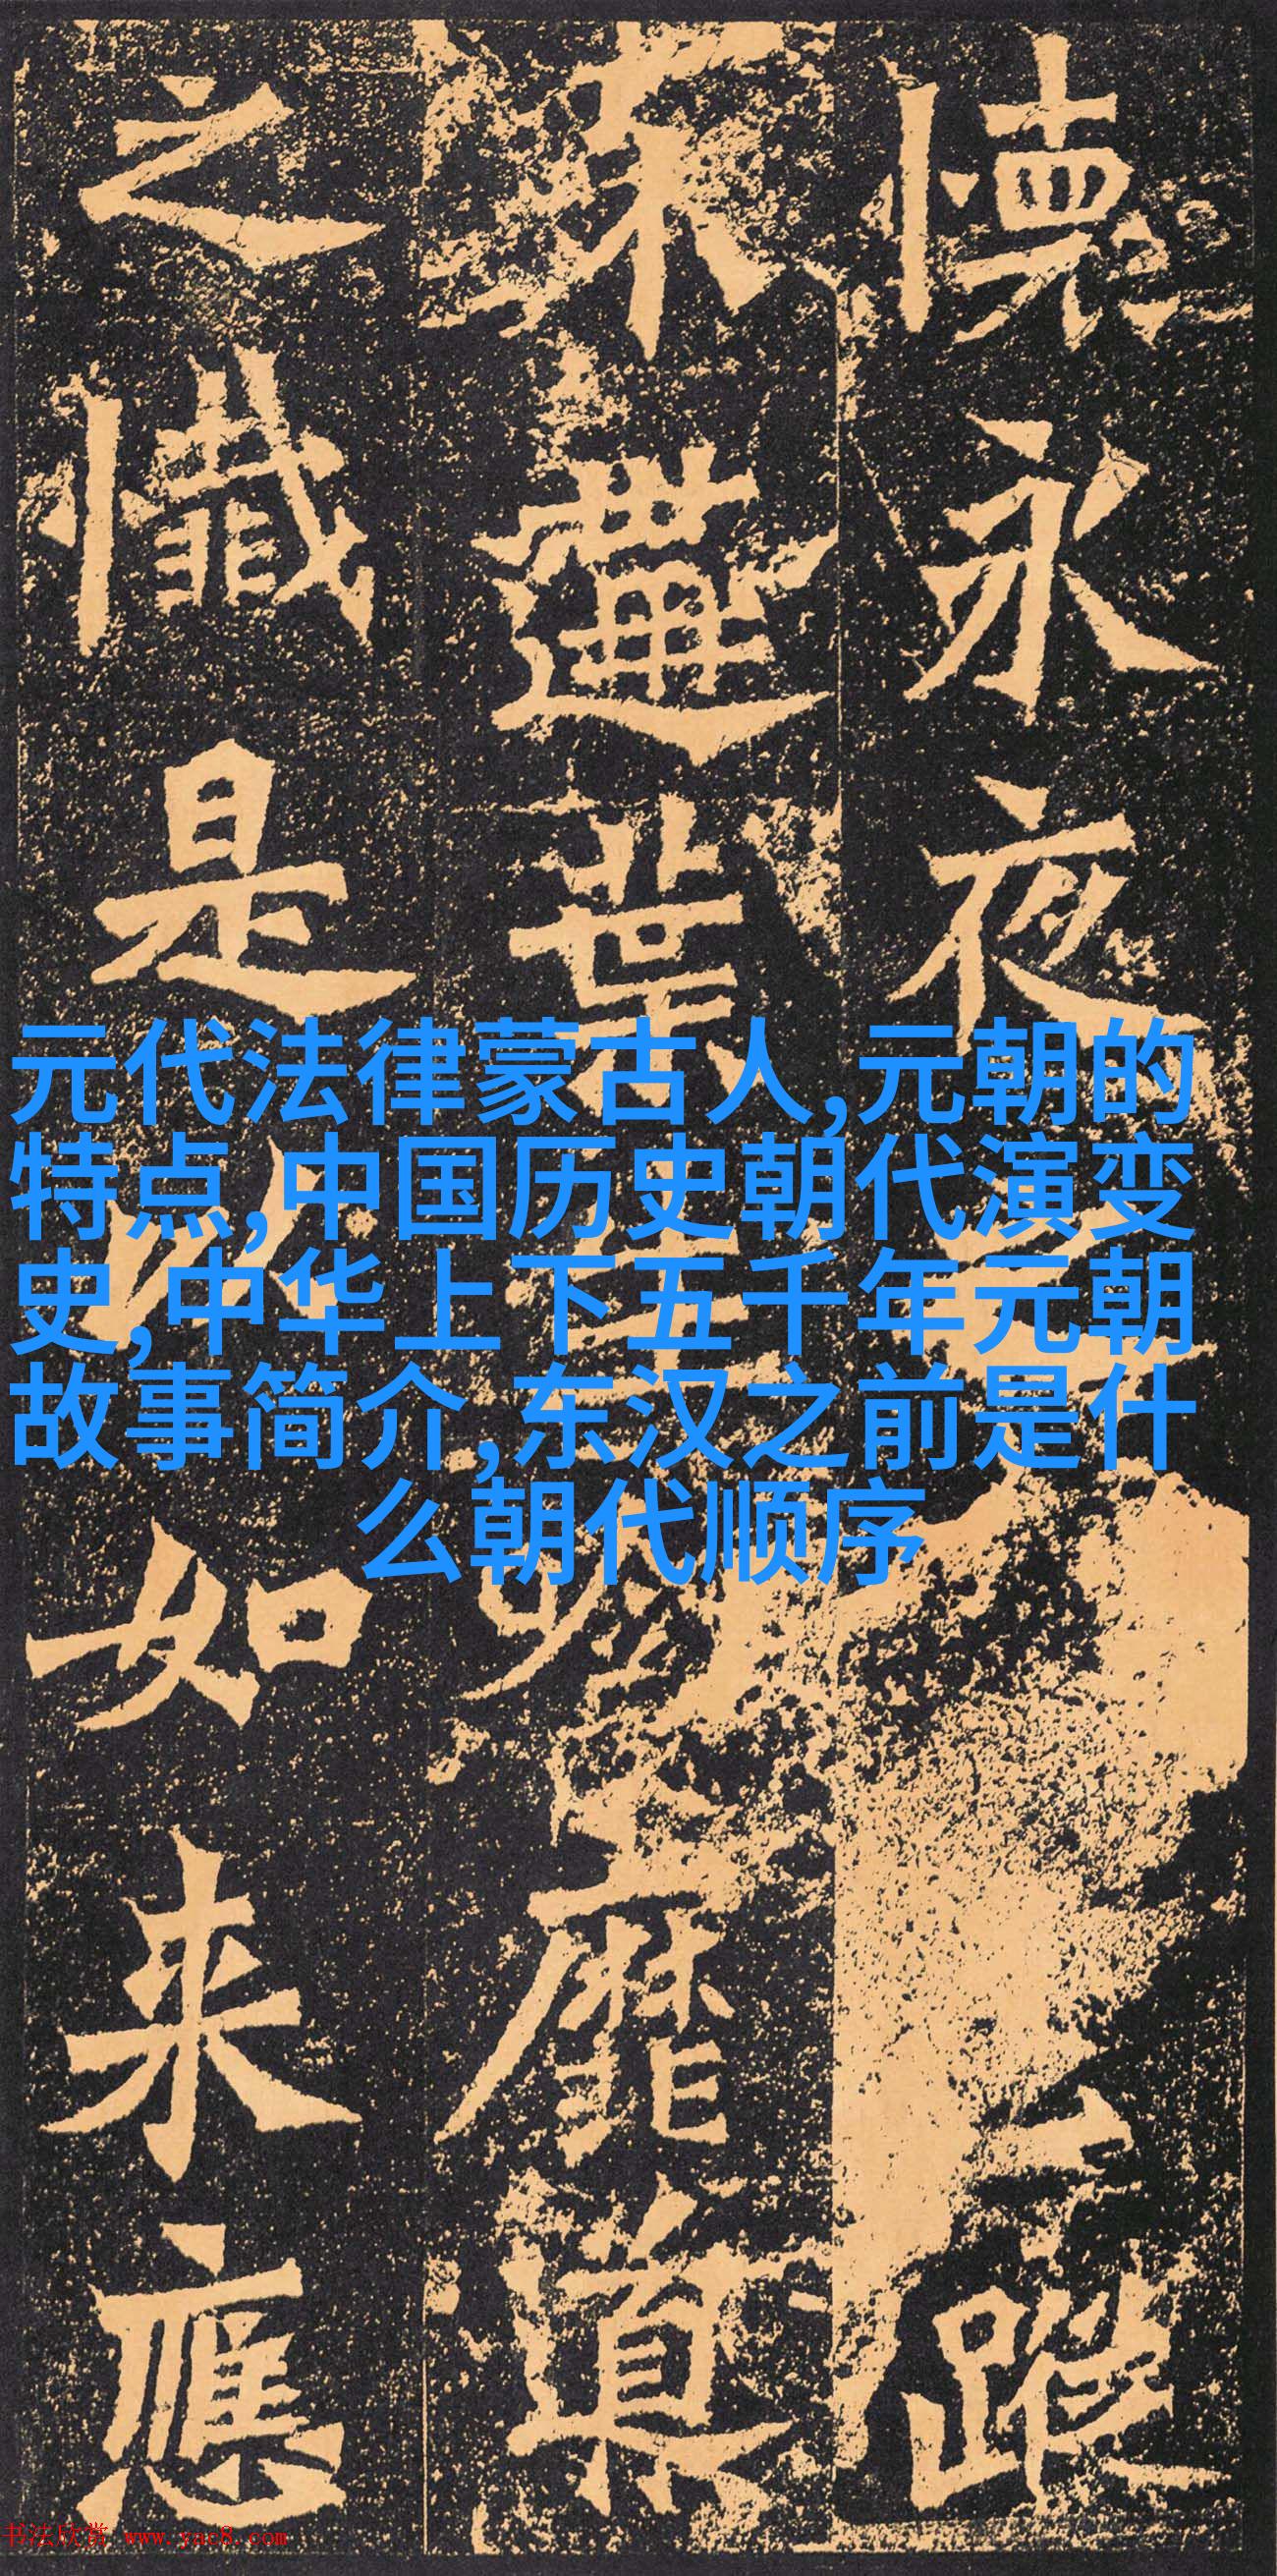 元代法律蒙古人,元朝的
特点,中国历史朝代演变
史,中华上下五千年元朝
故事简介,东汉之前是什
么朝代顺序
懷永夜蹤
葉靡
之懺是以如来應
书法欣赏 www.yac8.com